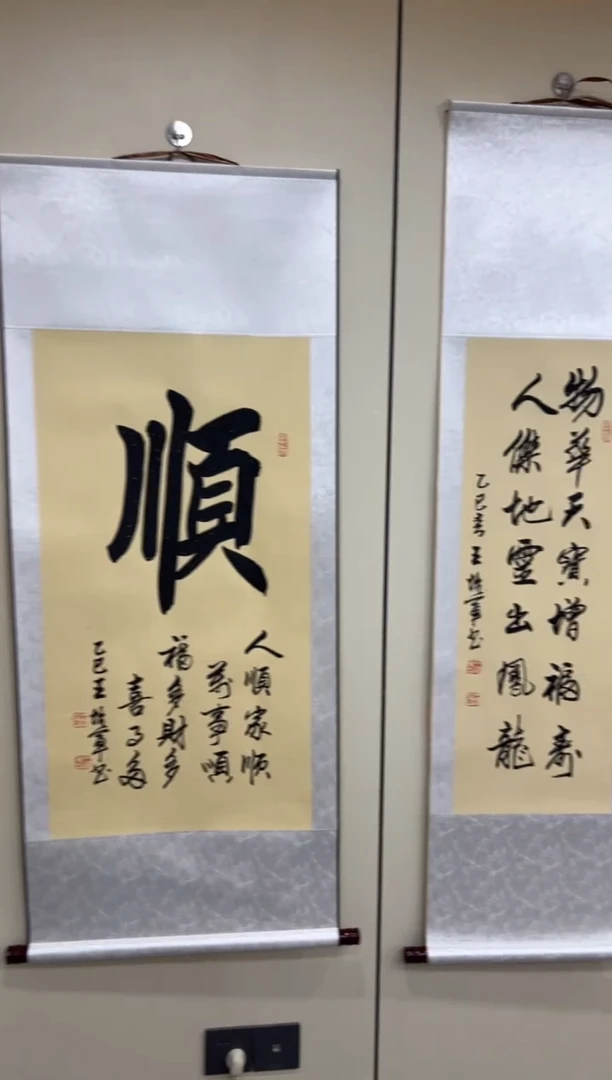 順
人順家順
萬事順
福多財多
喜事多
乙巳王章书
物華天寶增福寿
人傑地靈出鳳龍
乙巳王章书